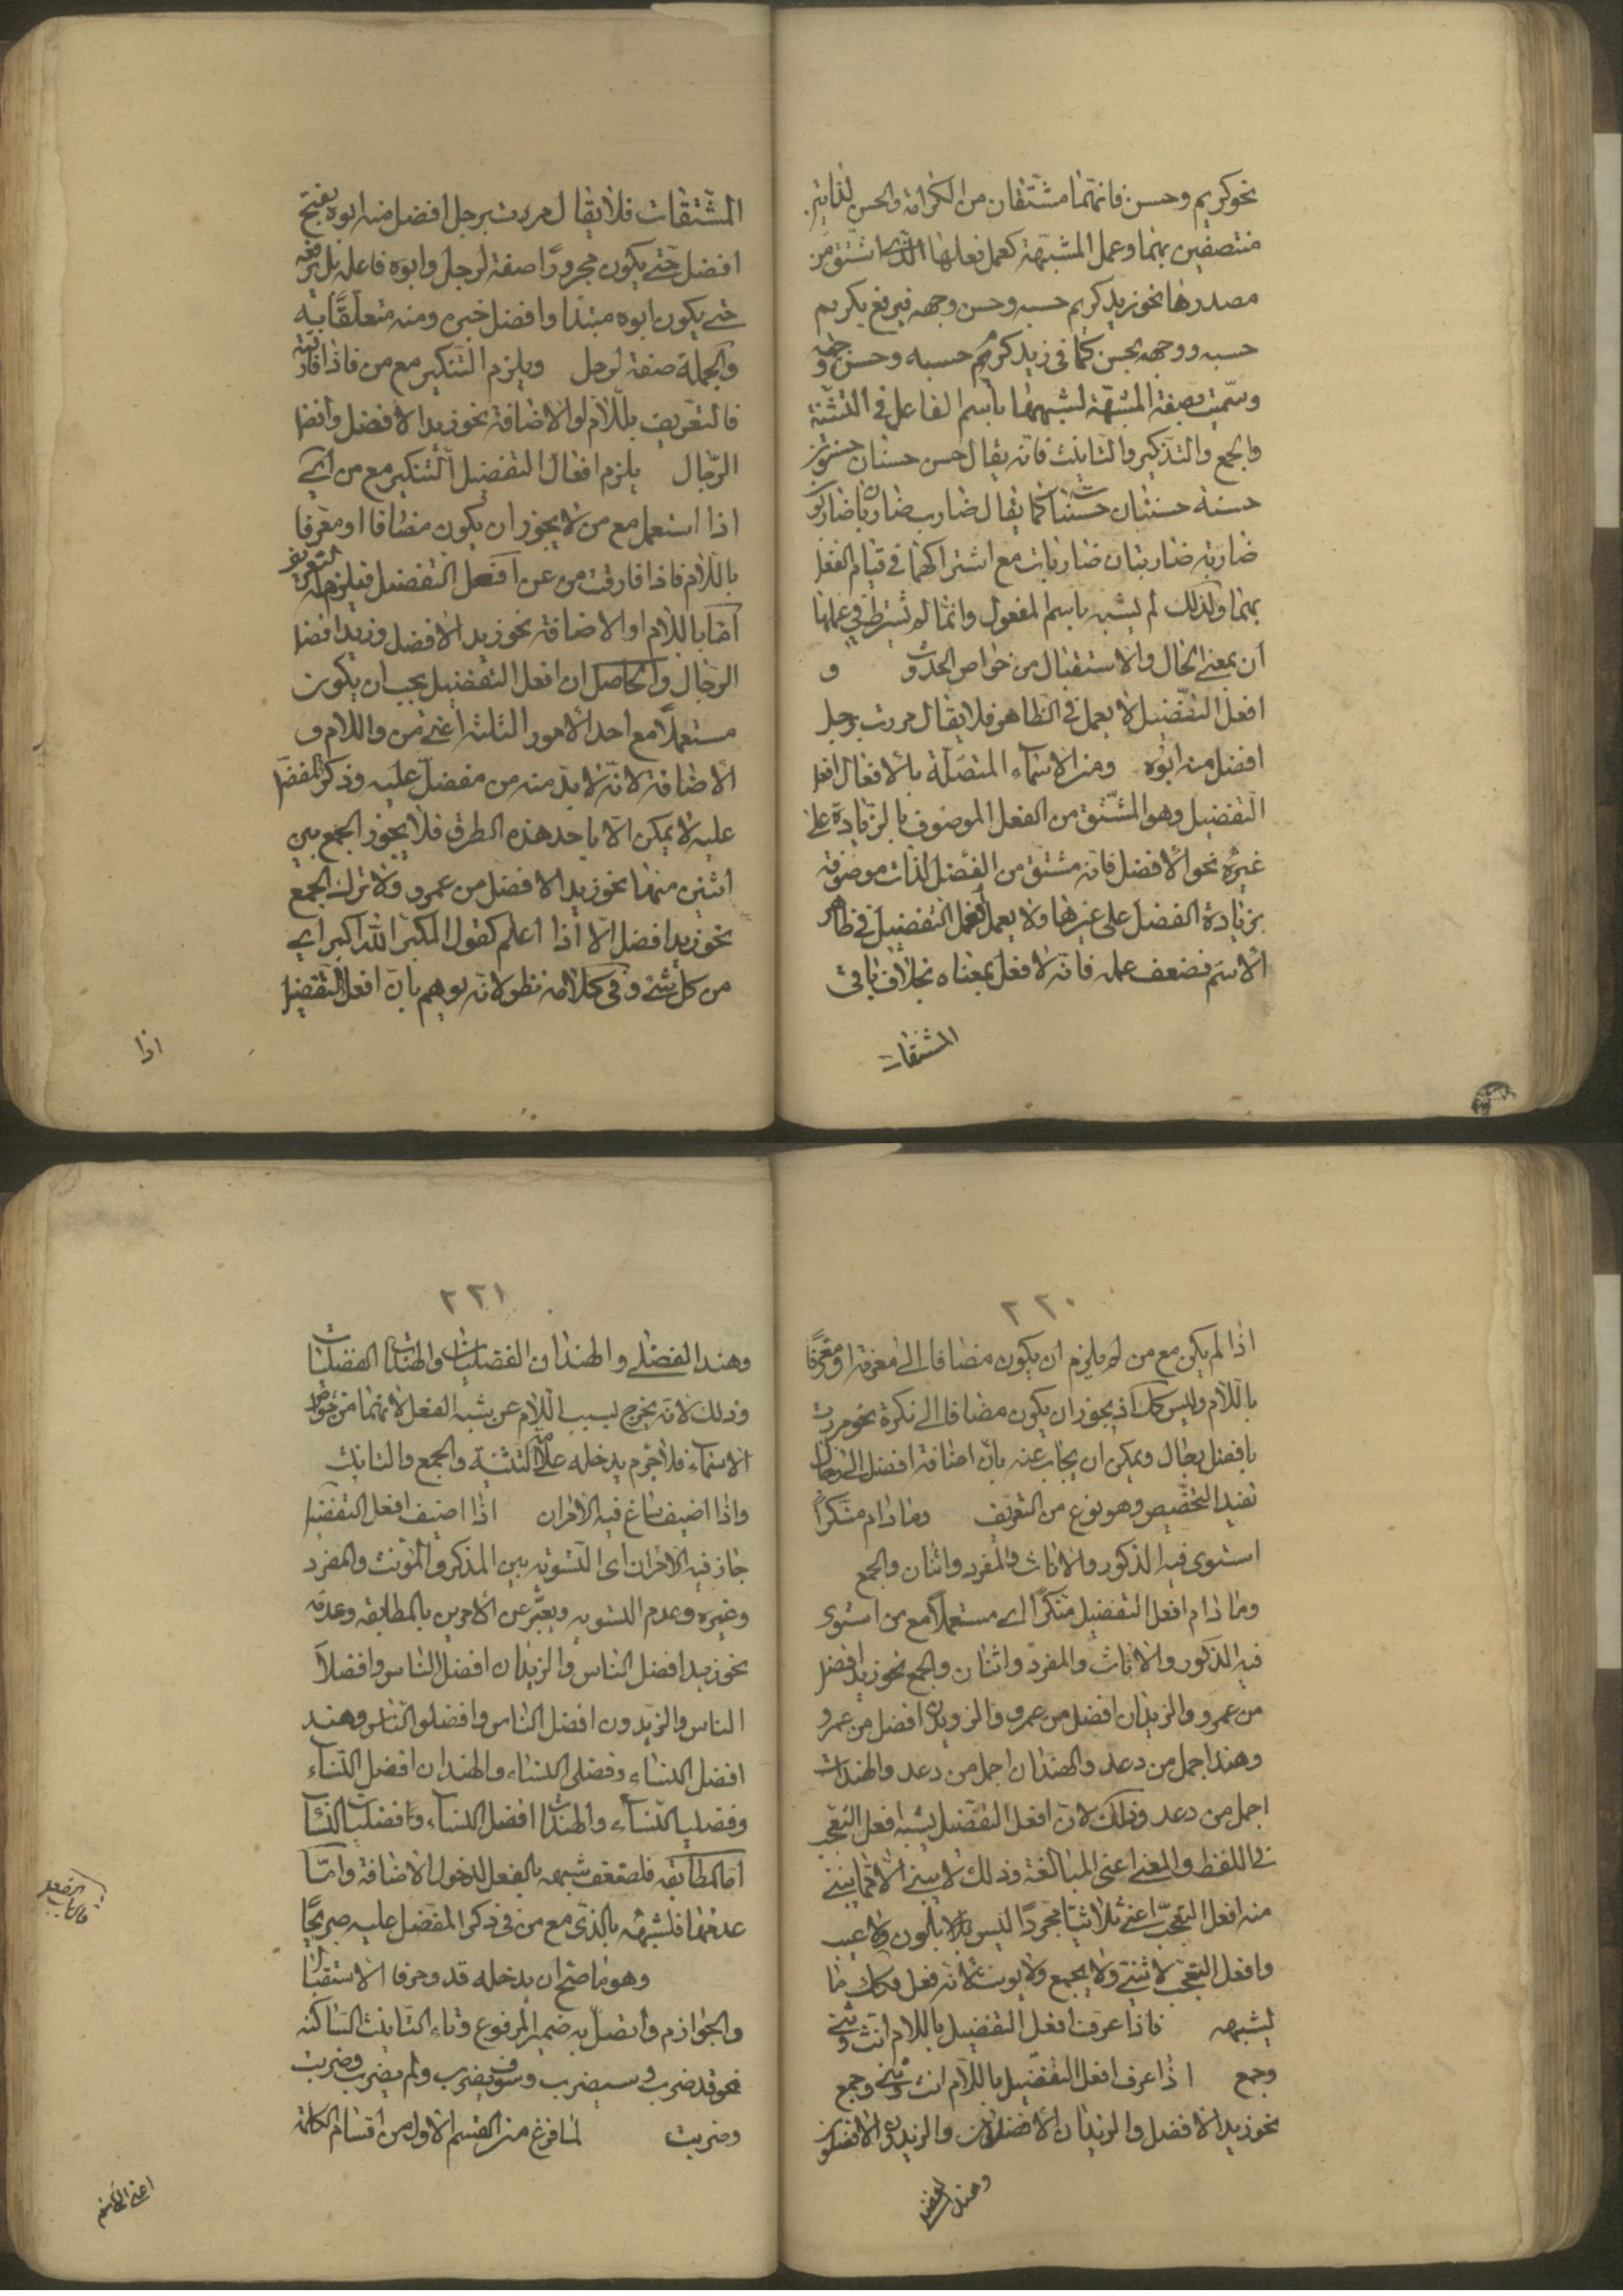 نحو كريم وحسن فانهما مشتقان من الكرامة والحسن لذاتين
متصفين بهما وعمل المشبهة كعمل فعلها الذي اشتق من
مصدرها نحو زيد كريم حسبه وحسن وجهه فيرفع بكريم
حسبه ووجهه بحسن كما في زيد كرم حسبه وحسن وجهه و
وسميت بصفة المشبهة لشبهها باسم الفاعل في التثنية
والجمع والتذكير والتانيث فانه يقال حسن حسنان حسنون
حسنة حسنتان حسنات كما يقال ضارب ضاربان ضاربون
ضاربة ضاربتان ضاربات مع اشتراكهما في قيام الفعل
بهما ولذلك لم يشبه باسم المفعول وانما لم يشترط في عملها
ان بمعنى الحال والاستقبال من خواص الحدوث و
افعل التفضيل لا يعمل في الظاهر فلا يقال مررت برجل
افضل منه ابوه ومن الاسماء المتصلة بالافعال افعل
التفضيل وهو المشتق من الفعل الموصوف بالزيادة على
غيره نحو الافضل فانه مشتق من الفضل لذات موصوفة
بزيادة الفضل على غيرها ولا يعمل افعل التفضيل في ظاهر
الاسم فضعف عمله فانه لا فعل بمعناه بخلاف باقي
المشتقات
المشتقات فلا يقال مررت برجل افضل منه ابوه بفتح
افضل حتى يكون مجرورا صفة لرجل وابوه فاعله بل يرفعه
حتى يكون ابوه مبتدا وافضل خبره ومنه متعلقا به
والجملة صفة لرجل ويلزم التنكير مع من فاذا فارقته
فالتعريف باللام او الاضافة نحو زيد الافضل وافضل
الرجال يلزم افعال التفضيل التنكير مع من اي
اذا استعمل مع من لا يجوز ان يكون مضافا او معرفا
باللام فاذا فارقت من عن افعل التفضيل فيلزمه التعريف
اما باللام او الاضافة نحو زيد الافضل وزيد افضل
الرجال والحاصل ان افعل التفضيل يجب ان يكون
مستعملا مع احد الامور الثلثة اعني من واللام و
الاضافة لانه لا بد منه من مفضل عليه وذكر المفضل
عليه لا يمكن الا باحد هذه الطرق فلا يجوز الجمع بين
اثنين منها نحو زيد الافضل من عمرو ولا ترك الجمع
نحو زيد افضل الا اذا اعلم كقول المكبر الله اكبر اي
من كل شئ وفي كلامه نظر لانه يوهم بان افعل التفضيل
اذا
٢٢٠
اذا لم يكن مع من لم يلزم ان يكون مضافا الى معرفة او معرفا
باللام وليس كك اذ يجوز ان يكون مضافا الى نكرة نحو مررت
بافضل رجال ويمكن ان يجاب عنه بان اضافة افضل الى رجال
تفيد التخصيص وهو نوع من التعريف وما دام منكرا
استوى فيه الذكور والاناث والمفرد واثنان والجمع
وما دام افعل التفضيل منكرا اي مستعملا مع من استوى
فيه الذكور والاناث والمفرد واثنان والجمع نحو زيد افضل
من عمرو والزيدان افضل من عمرو والزيدون افضل من عمرو
وهند اجمل من دعد والهندان اجمل من دعد والهندات
اجمل من دعد وذلك لان افعل التفضيل يشبه افعل التعجب
في اللفظ والمعنى اعني المبالغة وذلك لا يبنى الا مما يبنى
منه افعل التعجب اعني ثلاثيا مجردا ليس بلون ولا عيب
وافعل التعجب لا يثنى ولا يجمع ولا يونث لانه فعل فكك ما
يشبهه فاذا عرف افعل التفضيل باللام انث وثني
وجمع اذا عرف افعل التفضيل باللام انث وثني وجمع
نحو زيد الافضل والزيدان الافضلان والزيدون الافضلون
وهند الفضلى
٢٢١
وهند الفضلى والهندان الفضليان والهندات الفضليات
وذلك لانه يخرج بسبب اللام عن شبه الفعل لانها من خواص
الاسماء فلا جرم يدخله علامة التثنية والجمع والتانيث
واذا اضيف ساغ فيه الامران اذا اضيف افعل التفضيل
جاز فيه الامران اي التسوية بين المذكر والمؤنث والمفرد
وغيره وعدم التسوية ويعبر عن الامرين بالمطابقة وعدمه
نحو زيد افضل الناس والزيدان افضل الناس وافضلا
الناس والزيدون افضل الناس وافضلو الناس وهند
افضل النساء وفضلى النساء والهندان افضل النساء
وفضليا النساء والهندات افضل النساء وفضليات النساء
اما المطابقة فلضعف شبهه بالفعل لدخول الاضافة واما
عدمها فلشبهه بالذي مع من في ذكر المفضل عليه صريحا
وهو ما صح ان يدخله قد وحرفا الاستقبال
والجوازم واتصل به ضمير المرفوع وتاء التانيث الساكنة
نحو قد ضرب وسيضرب وسوف يضرب ولم يضرب وضربت
وضربت لما فرغ من القسم الاول من اقسام الكلمة
اعني الاسم